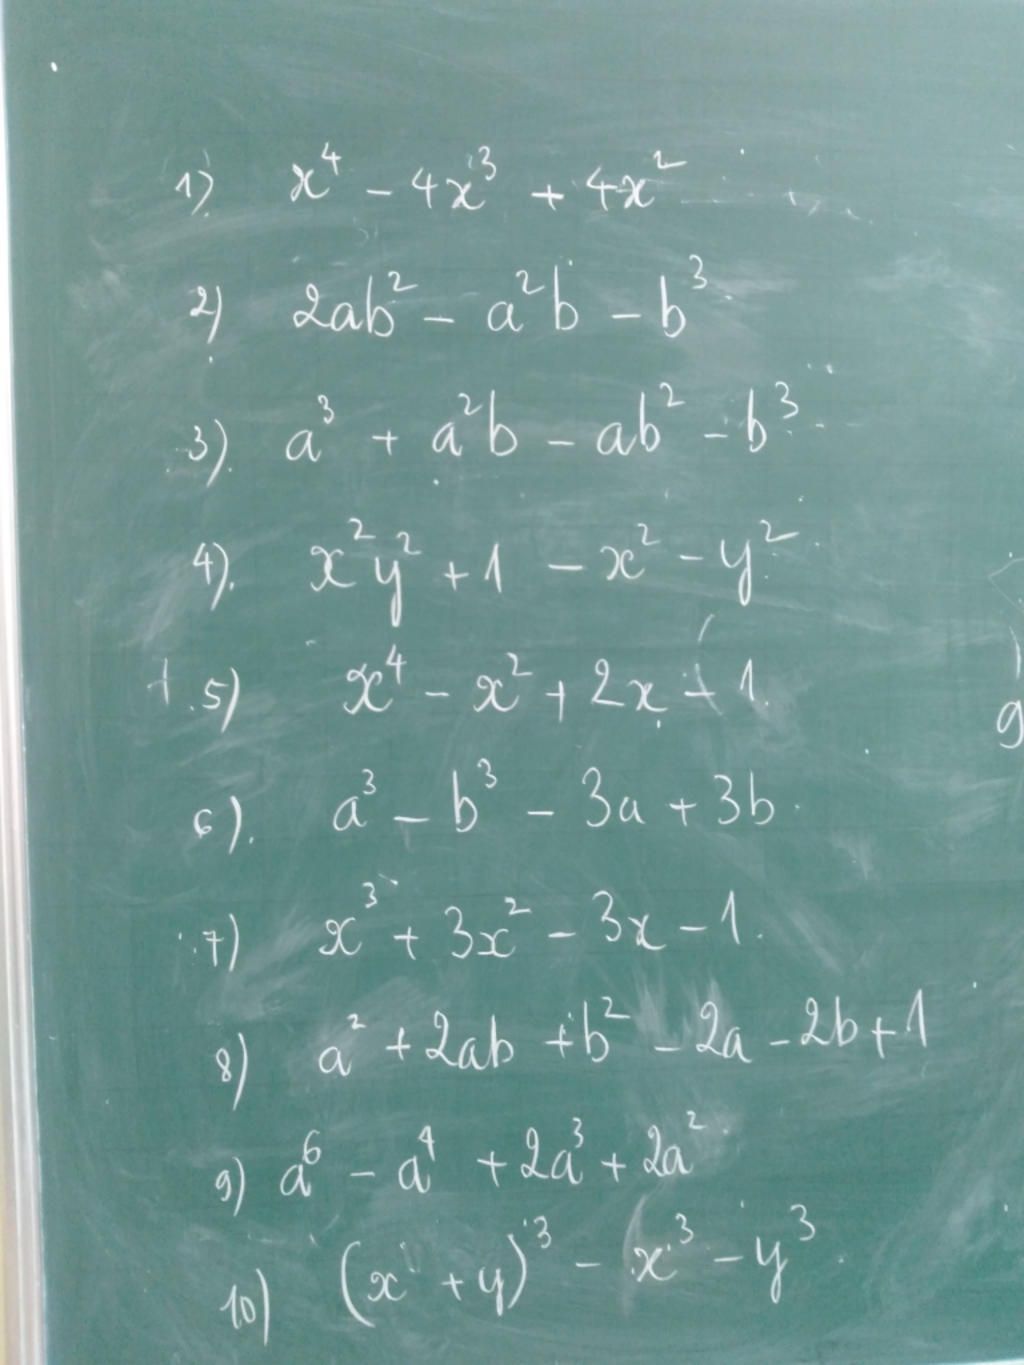 1) x⁴ - 4x³ + 4x²
2) 2ab² - a²b - b³
3) a³ + a²b - ab² - b³
4) x²y² + 1 - x² - y²
5) x⁴ - x² + 2x - 1
6) a³ - b³ - 3a + 3b
7) x³ + 3x² - 3x - 1
8) a² + 2ab + b² - 2a - 2b + 1
9) a⁶ - a⁴ + 2a³ + 2a²
10) (x + y)³ - x³ - y³
g